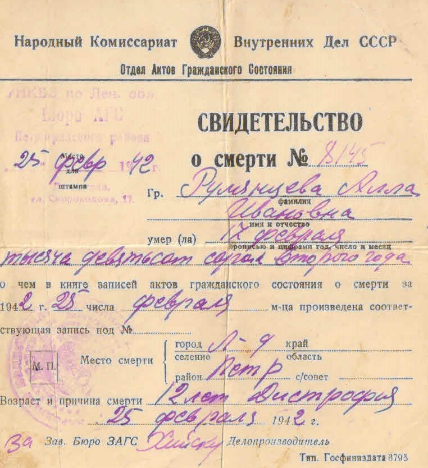 Народный Комиссариат Внутренних Дел СССР
Отдел Актов Гражданского Состояния
по Лен. обл
Бюро АГС
Петроградского района
СВИДЕТЕЛЬСТВО
25 февр 1942
Место для штампа
о смерти № 8145
ул. Скороходова, 17
Гр. Румянцева Алла
фамилия
Ивановна
имя и отчество
умер (ла) февраля
прописью и цифрами год, число и месяц
тысяча девятьсот сорок второго года
о чем в книге записей актов гражданского состояния о смерти за
1942 г. 25 числа февраля м-ца произведена соответ-
ствующая запись под №
М. П.
Место смерти
город Л-д край
селение область
район Петр с/совет
Возраст и причина смерти 12 лет Дистрофия
25 февраля 1942 г.
За Зав. Бюро ЗАГС Делопроизводитель
Тип. Госфиниздата 8795